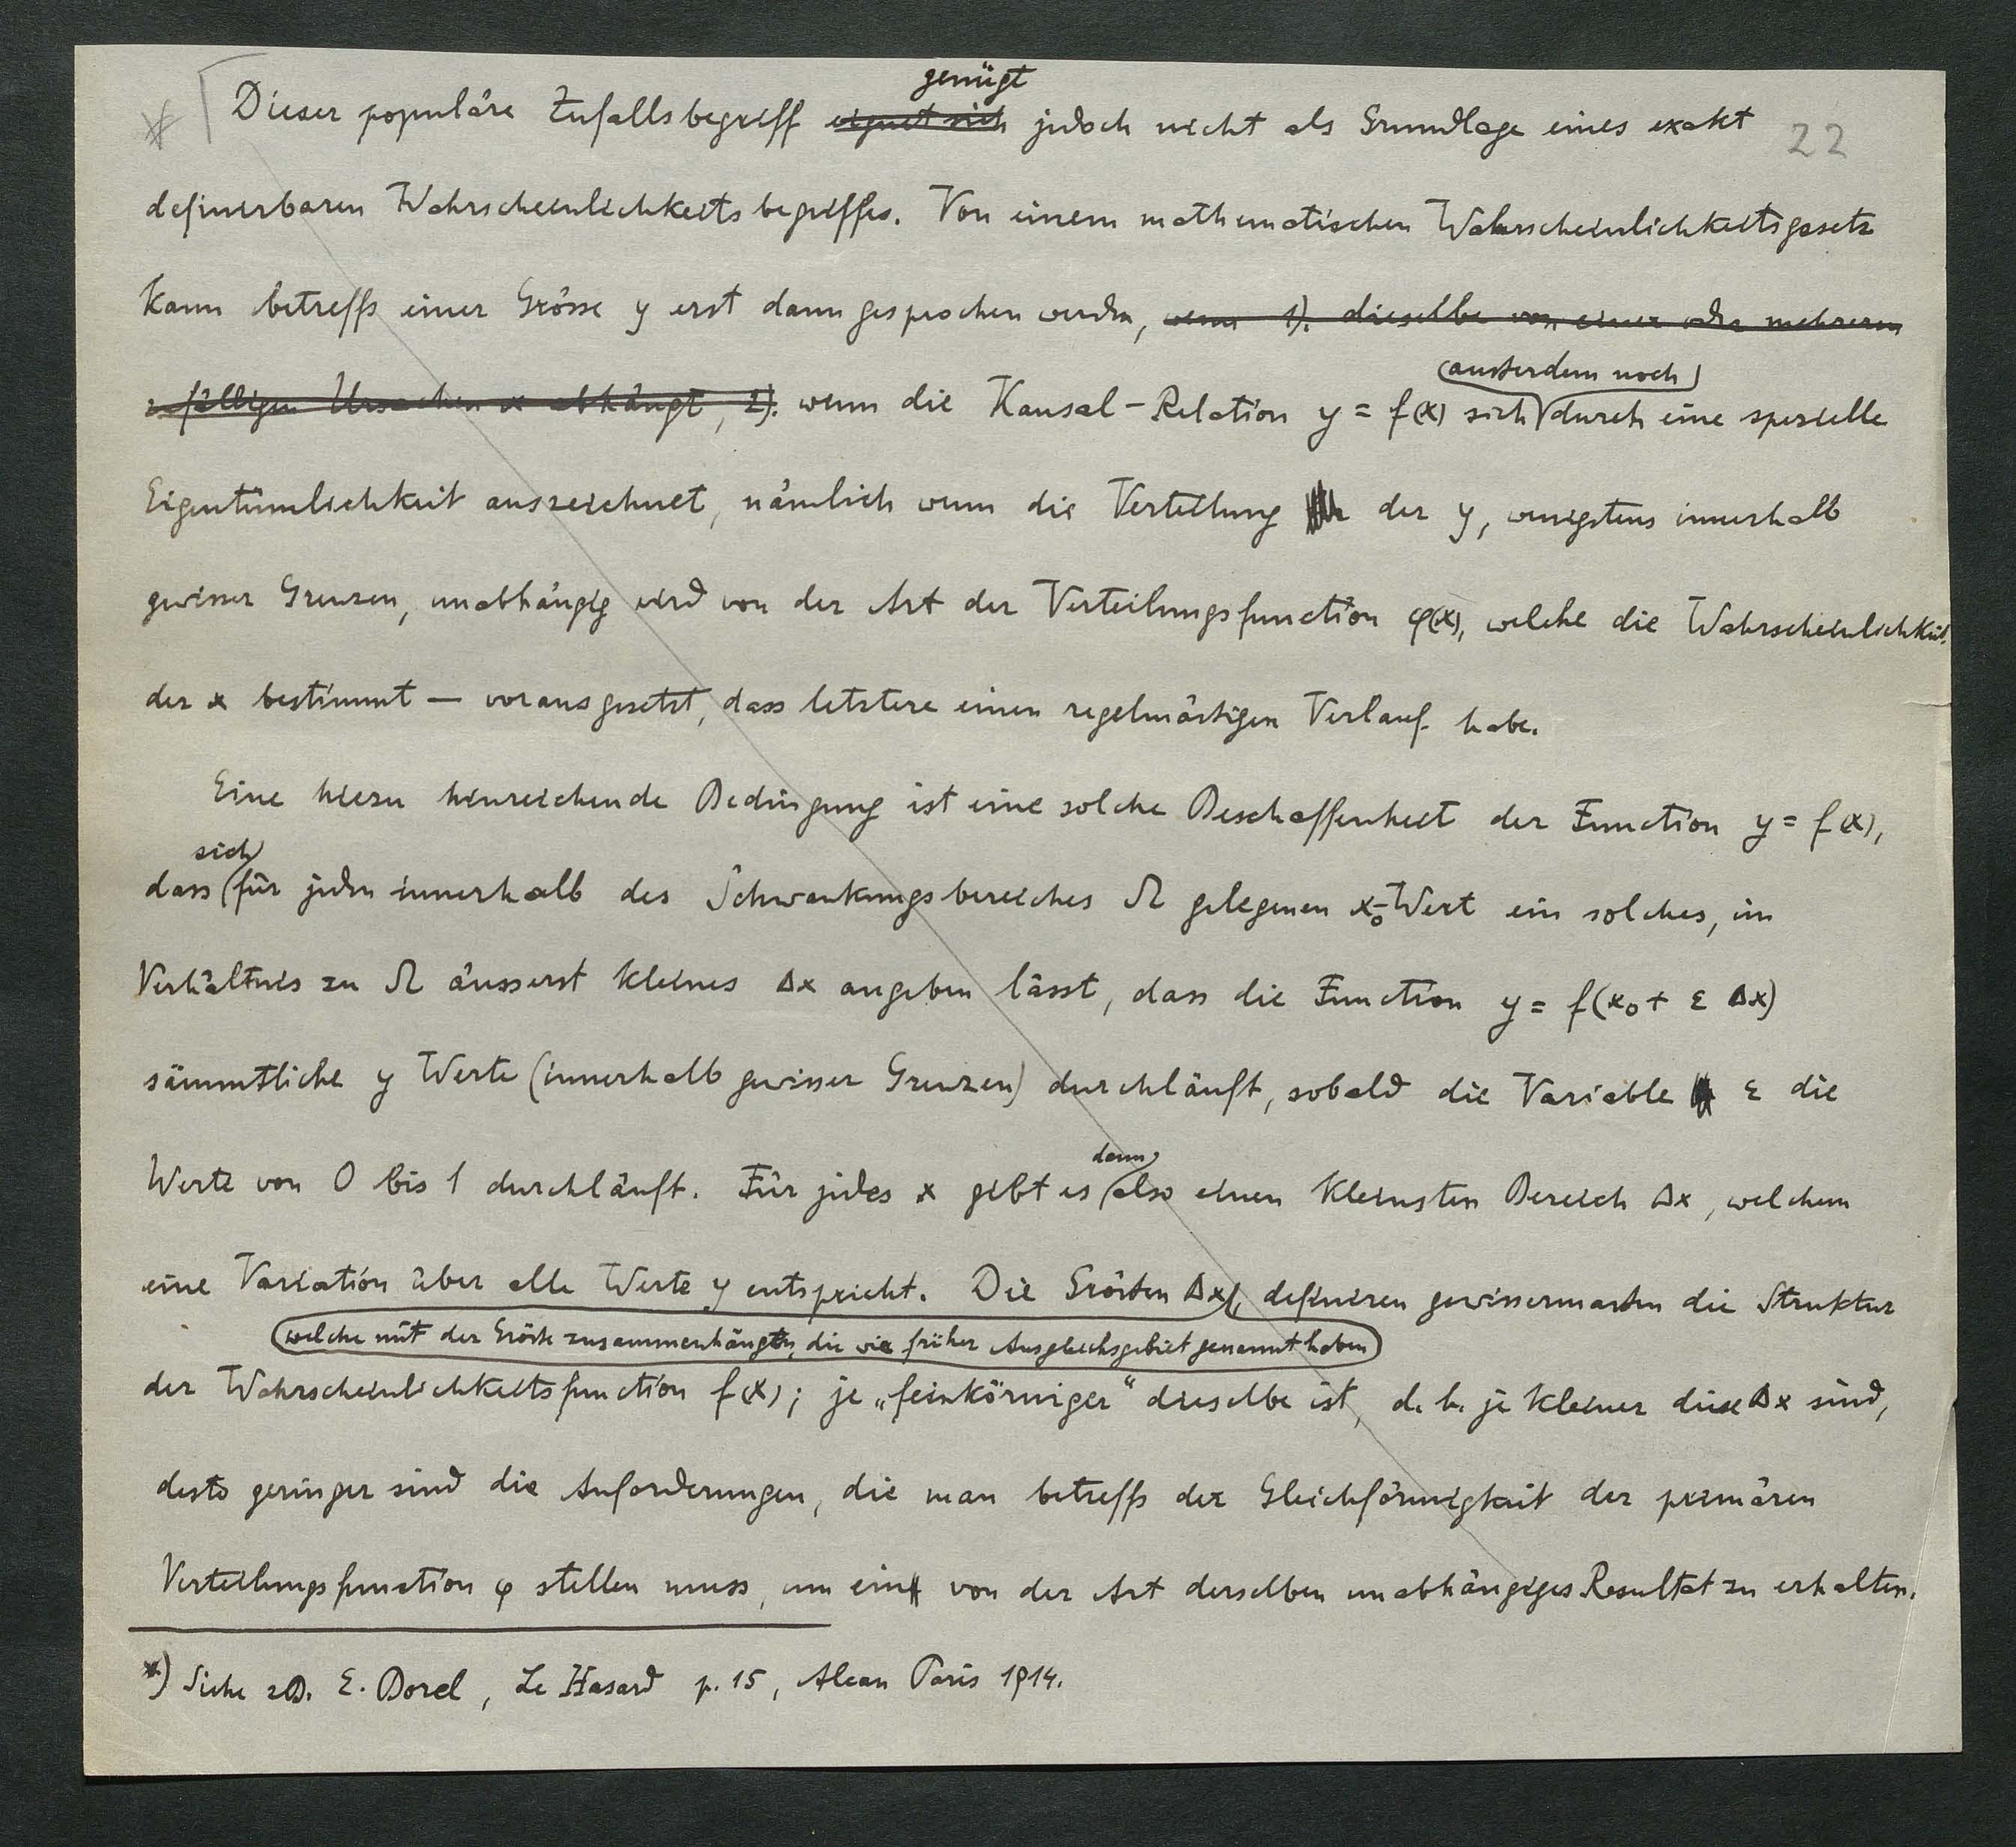 genügt
* Dieser populäre Zufallsbegriff eignet sich jedoch nicht als Grundlage eines exakt 22
definierbaren Wahrscheinlichkeitsbegriffes. Von einem mathematischen Wahrscheinlichkeitsgesetz
kann betreffs einer Grösse y erst dann gesprochen werden, wenn 1). dieselbe von einer oder mehreren
ausserdem noch
zufälligen Ursachen x abhängt, 2). wenn die Kausal-Relation y = f(x) sich durch eine spezielle
Eigentümlichkeit auszeichnet, nämlich wenn die Verteilung der y, wenigstens innerhalb
gewisser Grenzen, unabhängig wird von der Art der Verteilungsfunction φ(x), welche die Wahrscheinlichkeit
der x bestimmt — vorausgesetzt, dass letztere einen regelmässigen Verlauf habe.
Eine hiezu hinreichende Bedingung ist eine solche Beschaffenheit der Function y = f(x),
sich
dass für jeden innerhalb des Schwankungsbereiches Ω gelegenen x₀-Wert ein solches, im
Verhältnis zu Ω äusserst kleines Δx angeben lässt, dass die Function y = f(x₀ + ε Δx)
sämmtliche y Werte (innerhalb gewisser Grenzen) durchläuft, sobald die Variable ε die
dann
Werte von 0 bis 1 durchläuft. Für jedes x gibt es also einen kleinsten Bereich Δx, welchem
eine Variation über alle Werte y entspricht. Die Grössen Δx, definieren gewissermassen die Struktur
welche mit der Grösse zusammenhängen, die wir früher Ausgleichsgebiet genannt haben
der Wahrscheinlichkeitsfunction f(x); je „feinkörniger“ dieselbe ist, d. h. je kleiner diese Δx sind,
desto geringer sind die Anforderungen, die man betreffs der Gleichförmigkeit der primären
Verteilungsfunction φ stellen muss, um ein von der Art derselben unabhängiges Resultat zu erhalten.
*) Siehe z.B. E. Borel, Le Hasard p. 15, Alcan Paris 1914.